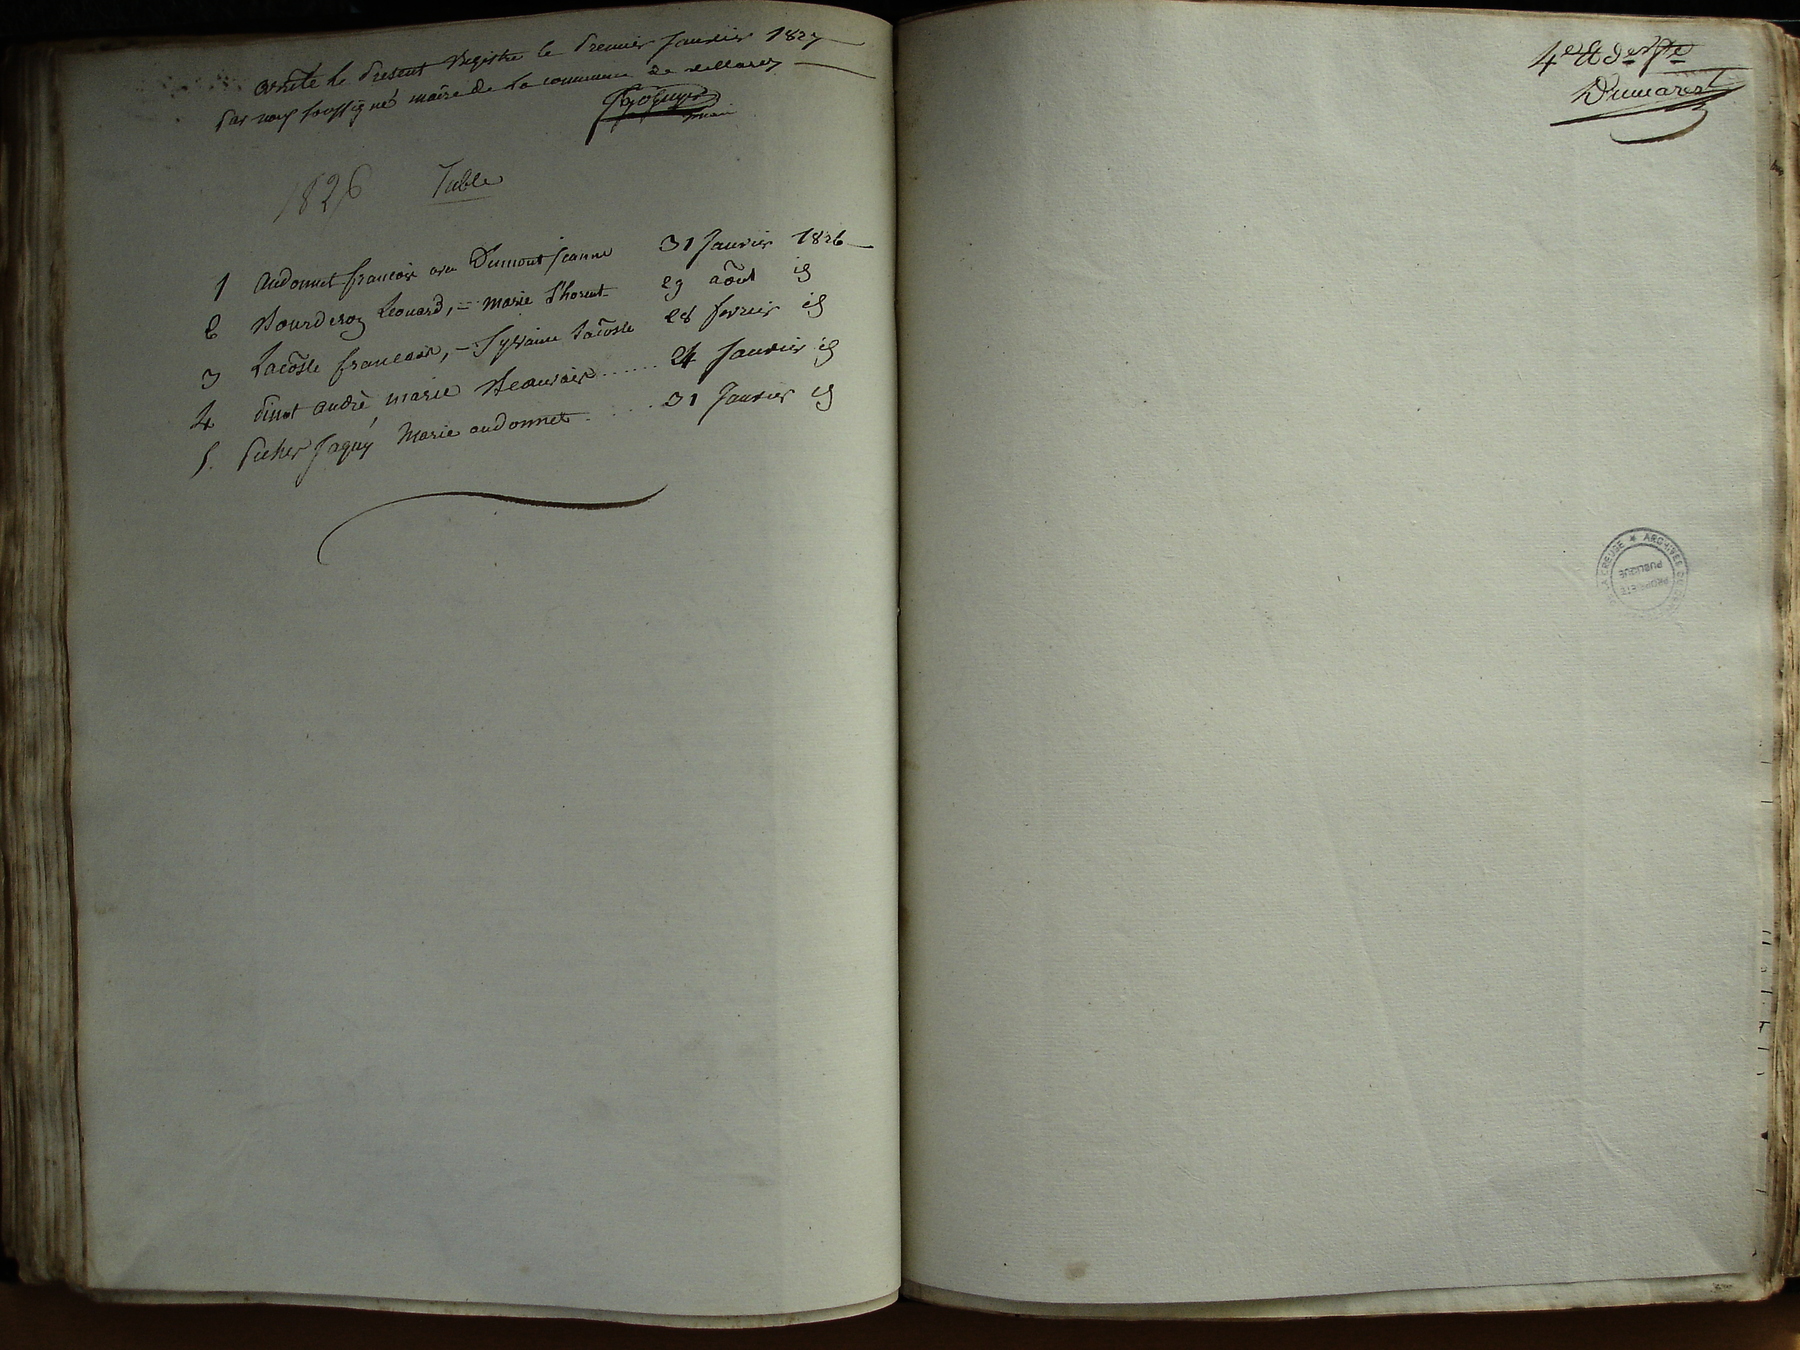 arrêté le present registre le premier janvier 1827
par nous soussigné maire de la commune de
maire
1826 Table
1 audonnet francois avec Dumont jeanne 31 janvier 1826
2 Bourderoy Léonard, = marie 29 août id
3 Lacôste francois, = Sylvaine Lacôste 28 fevrier id
4 pinot andré marie Beauvais ...... 24 janvier id
5. picher jaquy Marie audonnet ...... 31 janvier id
4e et der
Dumarest
ARCHIVES DE LA CREUSE
PROPRIETE
PUBLIQUE